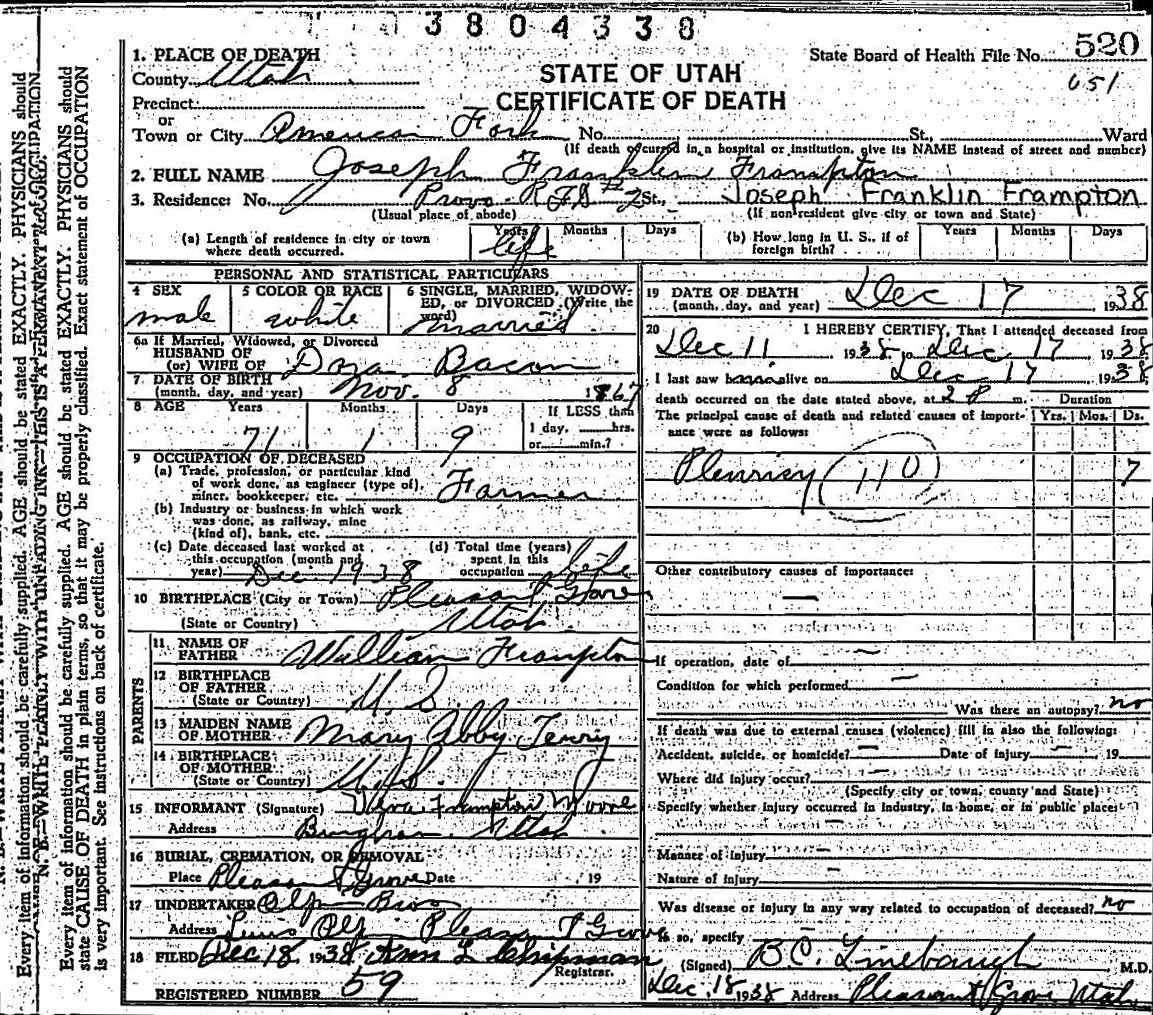 3804338
State Board of Health File No. 520
651
STATE OF UTAH
CERTIFICATE OF DEATH
1. PLACE OF DEATH
County Utah
Precinct
or
Town or City American Fork No. St., Ward
(If death occurred in a hospital or institution, give its NAME instead of street and number)
2. FULL NAME Joseph Franklin Frampton
3. Residence: No. Provo R.F.D #2 St., Joseph Franklin Frampton
(Usual place of abode) (If nonresident give city or town and State)
(a) Length of residence in city or town where death occurred. Years Months Days
life
(b) How long in U. S., if of foreign birth? Years Months Days
PERSONAL AND STATISTICAL PARTICULARS
4 SEX 5 COLOR OR RACE 6 SINGLE, MARRIED, WIDOWED, or DIVORCED (Write the word)
male white married
6a If Married, Widowed, or Divorced
HUSBAND OF
(or) WIFE OF Dora Bacon
7 DATE OF BIRTH
(month, day, and year) Nov. 8 1867
8 AGE Years Months Days If LESS than
1 day, hrs.
or min.?
71 1 9
9 OCCUPATION OF DECEASED
(a) Trade, profession, or particular kind
of work done, as engineer (type of),
miner, bookkeeper, etc. Farmer
(b) Industry or business in which work
was done, as railway, mine
(kind of), bank, etc.
(c) Date deceased last worked at
this occupation (month and
year) Dec 1938
(d) Total time (years)
spent in this
occupation life
10 BIRTHPLACE (City or Town) Pleasant Grove
(State or Country) Utah
PARENTS
11 NAME OF
FATHER William Frampton
12 BIRTHPLACE
OF FATHER
(State or Country) U. S
13 MAIDEN NAME
OF MOTHER Mary Abby Terry
14 BIRTHPLACE
OF MOTHER
(State or Country) U.S.
15 INFORMANT (Signature) Frampton Moore
Address Bingham Utah
16 BURIAL, CREMATION, OR REMOVAL
Place Pleasant Grove Date 19
17 UNDERTAKER Olpin Bros
Address Olpin Pleasant Grove
18 FILED Dec 18 1938 L Chipman
Registrar.
REGISTERED NUMBER 59
19 DATE OF DEATH
(month, day, and year) Dec 17 1938
20 I HEREBY CERTIFY, That I attended deceased from
Dec 11 1938 to Dec 17 1938
I last saw alive on Dec 17 1938
death occurred on the date stated above, at 2 P m. Duration
The principal cause of death and related causes of importance were as follows: Yrs. Mos. Ds.
Pleurisy (110) 7
Other contributory causes of importance:
If operation, date of
Condition for which performed
Was there an autopsy? no
If death was due to external causes (violence) fill in also the following:
Accident, suicide, or homicide? Date of injury 19
Where did injury occur?
(Specify city or town, county and State)
Specify whether injury occurred in industry, in home, or in public place:
Manner of injury
Nature of injury
Was disease or injury in any way related to occupation of deceased? no
If so, specify
(Signed) B.C. Linebaugh M.D.
Dec. 18 1938 Address Pleasant Grove Utah
Every item of information should be carefully supplied. AGE should be stated EXACTLY. PHYSICIANS should
N. B.—WRITE PLAINLY WITH UNFADING INK—THIS IS A PERMANENT RECORD.
Every item of information should be carefully supplied. AGE should be stated EXACTLY. PHYSICIANS should
state CAUSE OF DEATH in plain terms, so that it may be properly classified. Exact statement of OCCUPATION
is very important. See instructions on back of certificate.